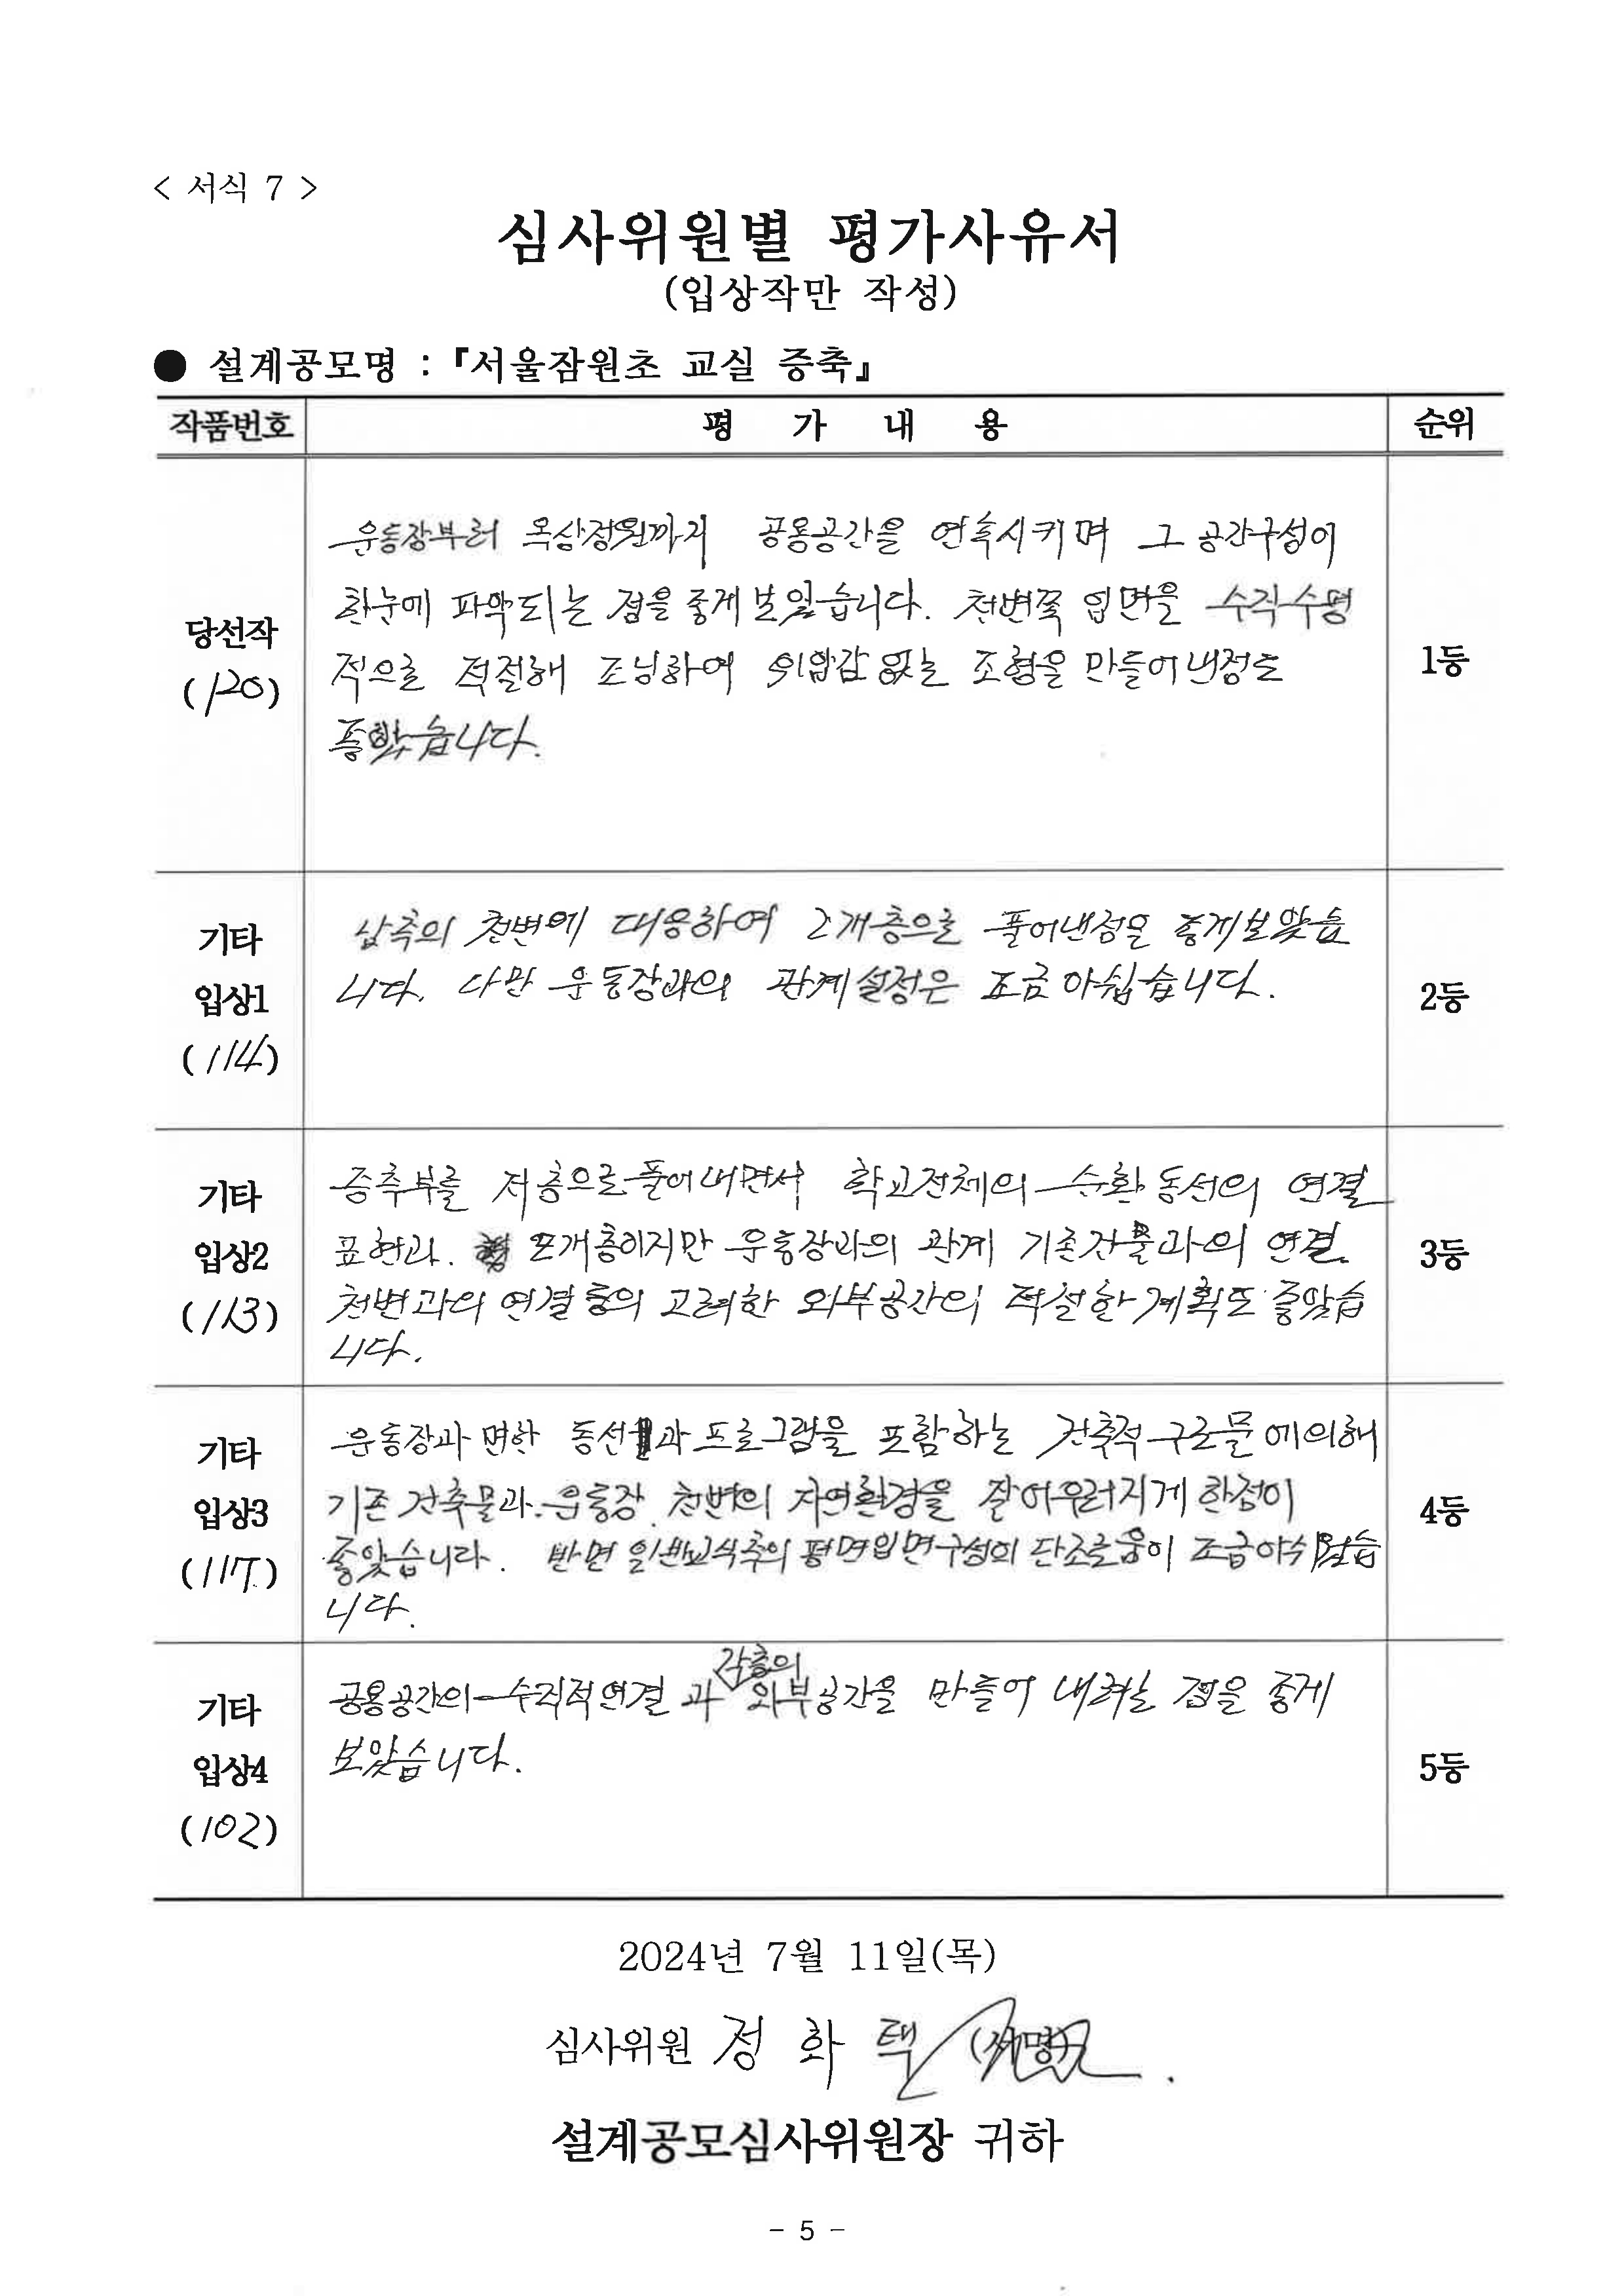 < 서식 7 >
심사위원별 평가사유서
(입상작만 작성)
● 설계공모명 : 『서울잠원초 교실 증축』
작품번호 평 가 내 용 순위
운동장부터 옥상정원까지 공용공간을 연속시키며 그 공간구성이
한눈에 파악되는 점을 좋게 보았습니다. 천변쪽 입면을 수직수평
당선작
적으로 적절해 조닝하여 위압감 없는 조형을 만들어낸점도
1등
(120)
좋았습니다.
기타
남측의 천변에 대응하여 2개층으로 풀어낸점을 좋게보았습
니다. 다만 운동장과의 관계설정은 조금 아쉽습니다.
입상1
2등
(114)
기타
증축부를 저층으로 풀어내면서 학교전체의 순환동선의 연결
표현과. 개층이지만 운동장과의 관계 기존건물과의 연결
입상2
3등
천변과의 연결등의 고려한 외부공간의 적절한 계획도 좋았습
(113)
니다.
운동장과 면한 동선과 프로그램을 포함하는 건축적 구조물에의해
기타
기존 건축물과. 운동장. 천변의 자연환경을 잘어우러지게 한점이
입상3
4등
좋았습니다. 반면 일반교실측의 평면입면구성의 단조로움이 조금아쉬웠습
(117)
니다.
각층의
공용공간의 수직적연결 과 외부공간을 만들어 내려는 점을 좋게
기타
보았습니다.
입상4
5등
(102)
2024년 7월 11일(목)
심사위원 정 화 택 (서명)
설계공모심사위원장 귀하
- 5 -